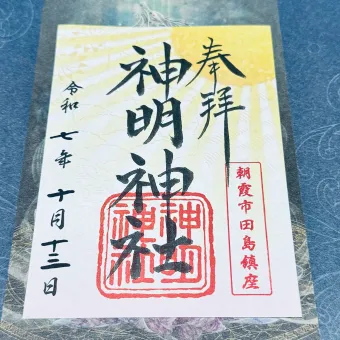 奉拝
朝霞市田島鎮座
神明神社
神明神社
令和七年十月十三日